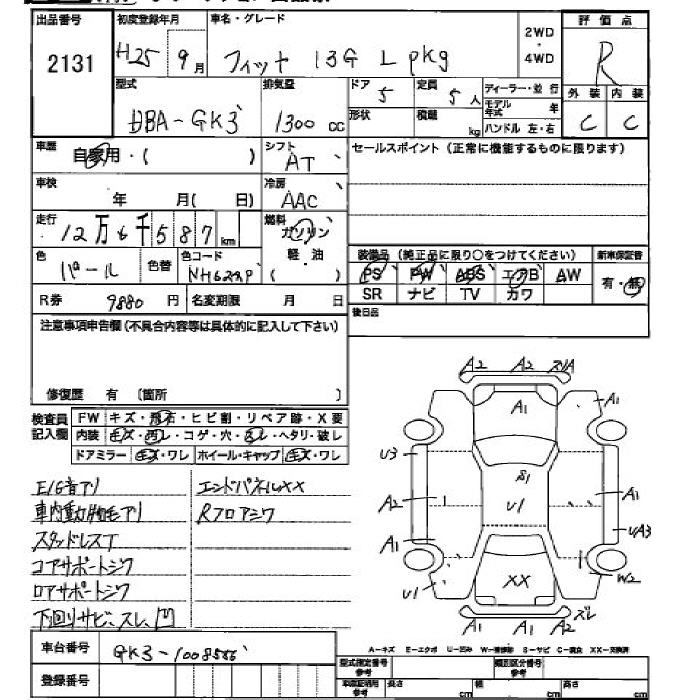 出品番号 初度登録年月 車名・グレード 2WD・4WD 評価点
2131 H25 9月 フィット 13G L pkg R
型式 排気量 ドア 5 定員 5人 ディーラー・並行 外装 内装
DBA-GK3 1300cc 形状 積載 kg モデル年式 年 ハンドル 左・右 C C
車歴 自家用・( ) シフト AT セールスポイント (正常に機能するものに限ります)
車検 年 月( 日) 冷房 AAC
走行 12万6千587km 燃料 ガソリン
色 パール 色替 色コード NH622P 軽・油 ( )
装備品 (純正品に限り○をつけてください) 新車保証書
PS PW ABS エアB AW 有・無
SR ナビ TV カワ
R券 9880円 名変期限 月 日 後日品
注意事項申告欄(不具合内容等は具体的に記入して下さい)
修復歴 有 〔箇所 〕
検査員記入欄 FW キズ・飛石・ヒビ割・リペア跡・X要
内装 キズ・汚レ・コゲ・穴・ ・ヘタリ・破レ
ドアミラー キズ・ワレ ホイール・キャップ キズ・ワレ
E/G音アリ エンドパネルXX
車内動物毛アリ Rフロアシワ
スタッドレスT
コアサポートシワ
ロアサポートシワ
下回りサビ、スレ、凹
A2 A2 スリA
A1 A1
U3 S1
A2 U1 A1
A1 UA3
U1 XX W2
A1 A1 A2 ズレ
A-キズ E-エクボ U-凹み W-補修跡 S-サビ C-腐食 XX-交換済
車台番号 GK3-1008556
登録番号
型式指定番号 参考 類別区分番号 参考
車庫証明用 参考 長さ cm 幅 cm 高さ cm